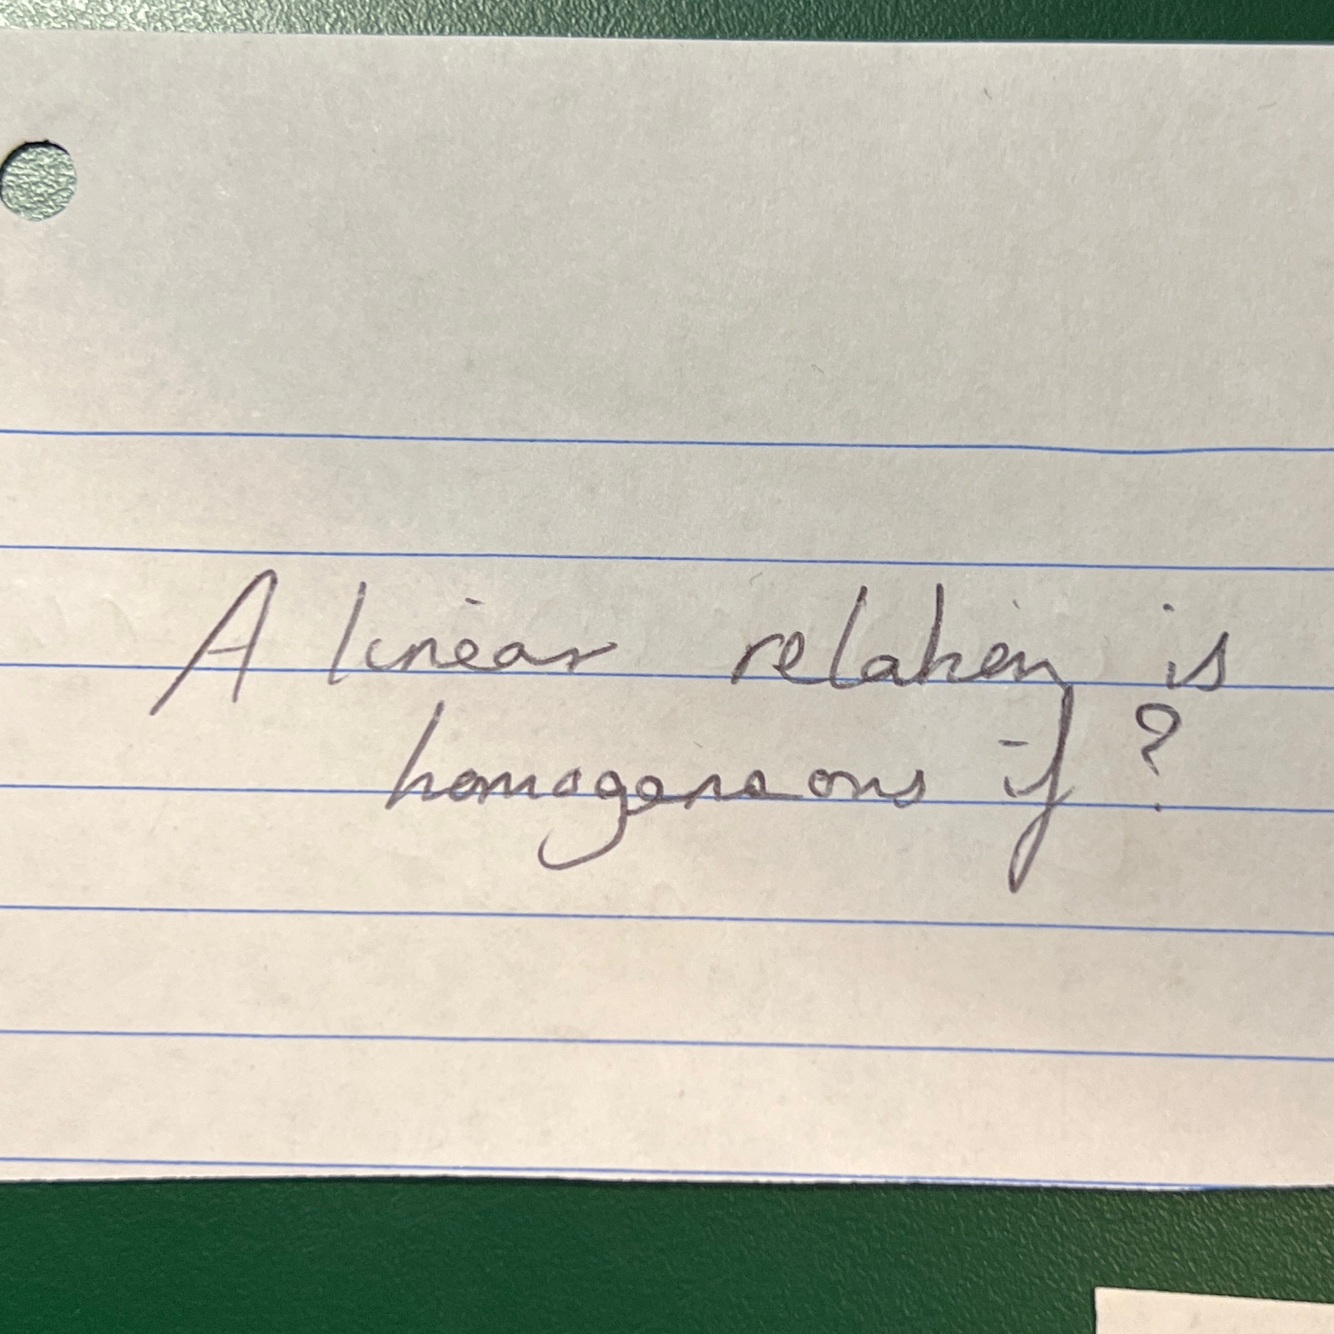 A linear relation is
homogeneous if ?